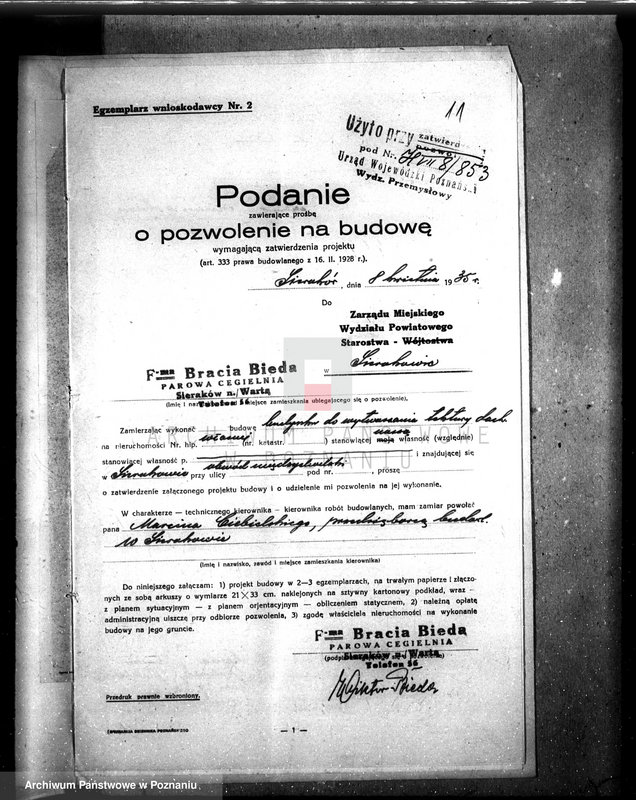 11
Egzemplarz wnioskodawcy Nr. 2
Użyto przy zatwierdz.
pod Nr. H VII 8/853
Urząd Wojewódzki Poznański
Wydz. Przemysłowy
Podanie
zawierające prośbę
o pozwolenie na budowę
wymagającą zatwierdzenia projektu
(art. 333 prawa budowlanego z 16. II. 1928 r.).
Sieraków, dnia 8 kwietnia 1935 r.
Do
Zarządu Miejskiego
Wydziału Powiatowego
Starostwa - Wójtostwa
w Sierakowie
F-ma Bracia Bieda
PAROWA CEGIELNIA
Sieraków n./Wartą
Telefon 56
(Imię i nazwisko, zawód i miejsce zamieszkania ubiegającego się o pozwolenie).
Zamierzając wykonać budowę budynku do wytwarzania tektury dach.
na nieruchomości Nr. hip. własnej (nr. katastr. ) stanowiącej moją nasza własność (względnie)
stanowiącej własność p. i znajdującej się
w Sierakowie przy ulicy pod nr. , proszę
o zatwierdzenie załączonego projektu budowy i o udzielenie mi pozwolenia na jej wykonanie.
W charakterze — technicznego kierownika - kierownika robót budowlanych, mam zamiar powołać
pana Marcina Ciebielskiego, przedsiębiorcę budowl.
w Sierakowie
(Imię i nazwisko, zawód i miejsce zamieszkania kierownika)
Do niniejszego załączam: 1) projekt budowy w 2—3 egzemplarzach, na trwałym papierze i złączo-
nych ze sobą arkuszy o wymiarze 21×33 cm. naklejonych na sztywny kartonowy podkład, wraz -
z planem sytuacyjnym — z planem orjentacyjnym — obliczeniem statycznem, 2) należną opłatę
administracyjną uiszczę przy odbiorze pozwolenia, 3) zgodę właściciela nieruchomości na wykonanie
budowy na jego gruncie.
F-ma Bracia Bieda
PAROWA CEGIELNIA
Sieraków n./Wartą
Telefon 56
Wiktor Bieda
Przedruk prawnie wzbroniony.
— 1 —
ARCHIWUM PAŃSTWOWE
W POZNANIU
Archiwum Państwowe w Poznaniu